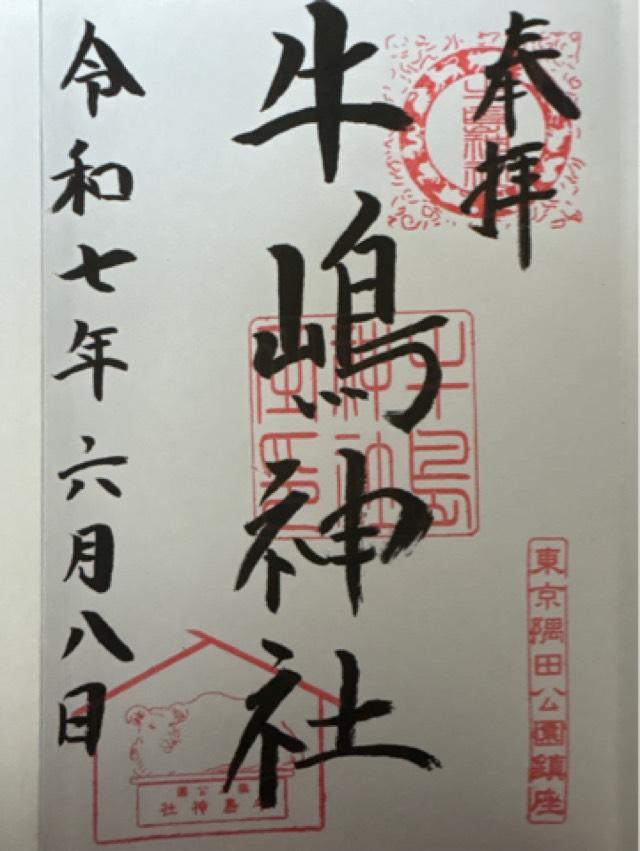 奉拝
東京隅田公園鎮座
牛嶋神社
牛島神社
令和七年六月八日